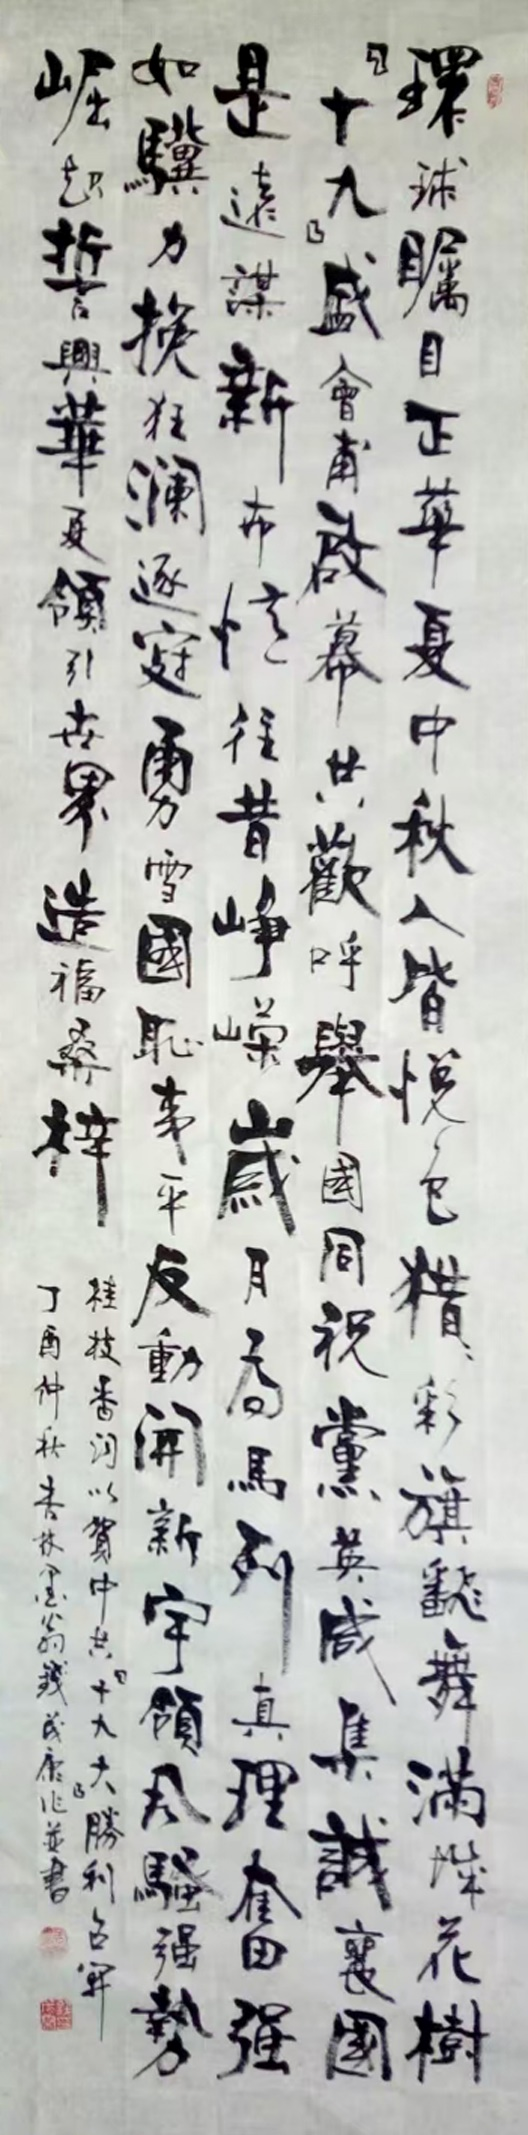 環球矚目正華夏中秋人皆悅色獵獵彩旗飜舞滿城花樹
『十九』盛會甫啟幕共歡呼舉國同祝黨英咸集誠襄國
是遠謀新布憶往昔崢嶸歲月高馬列真理奮強
如驥力挽狂瀾逐寇勇雪國恥事平反動開新宇領風騷強勢
崛起誓興華夏領引世界造福桑梓
桂枝香词以賀中共『十九大』勝利召開
丁酉仲秋杏林墨翁錢茂唐作並書